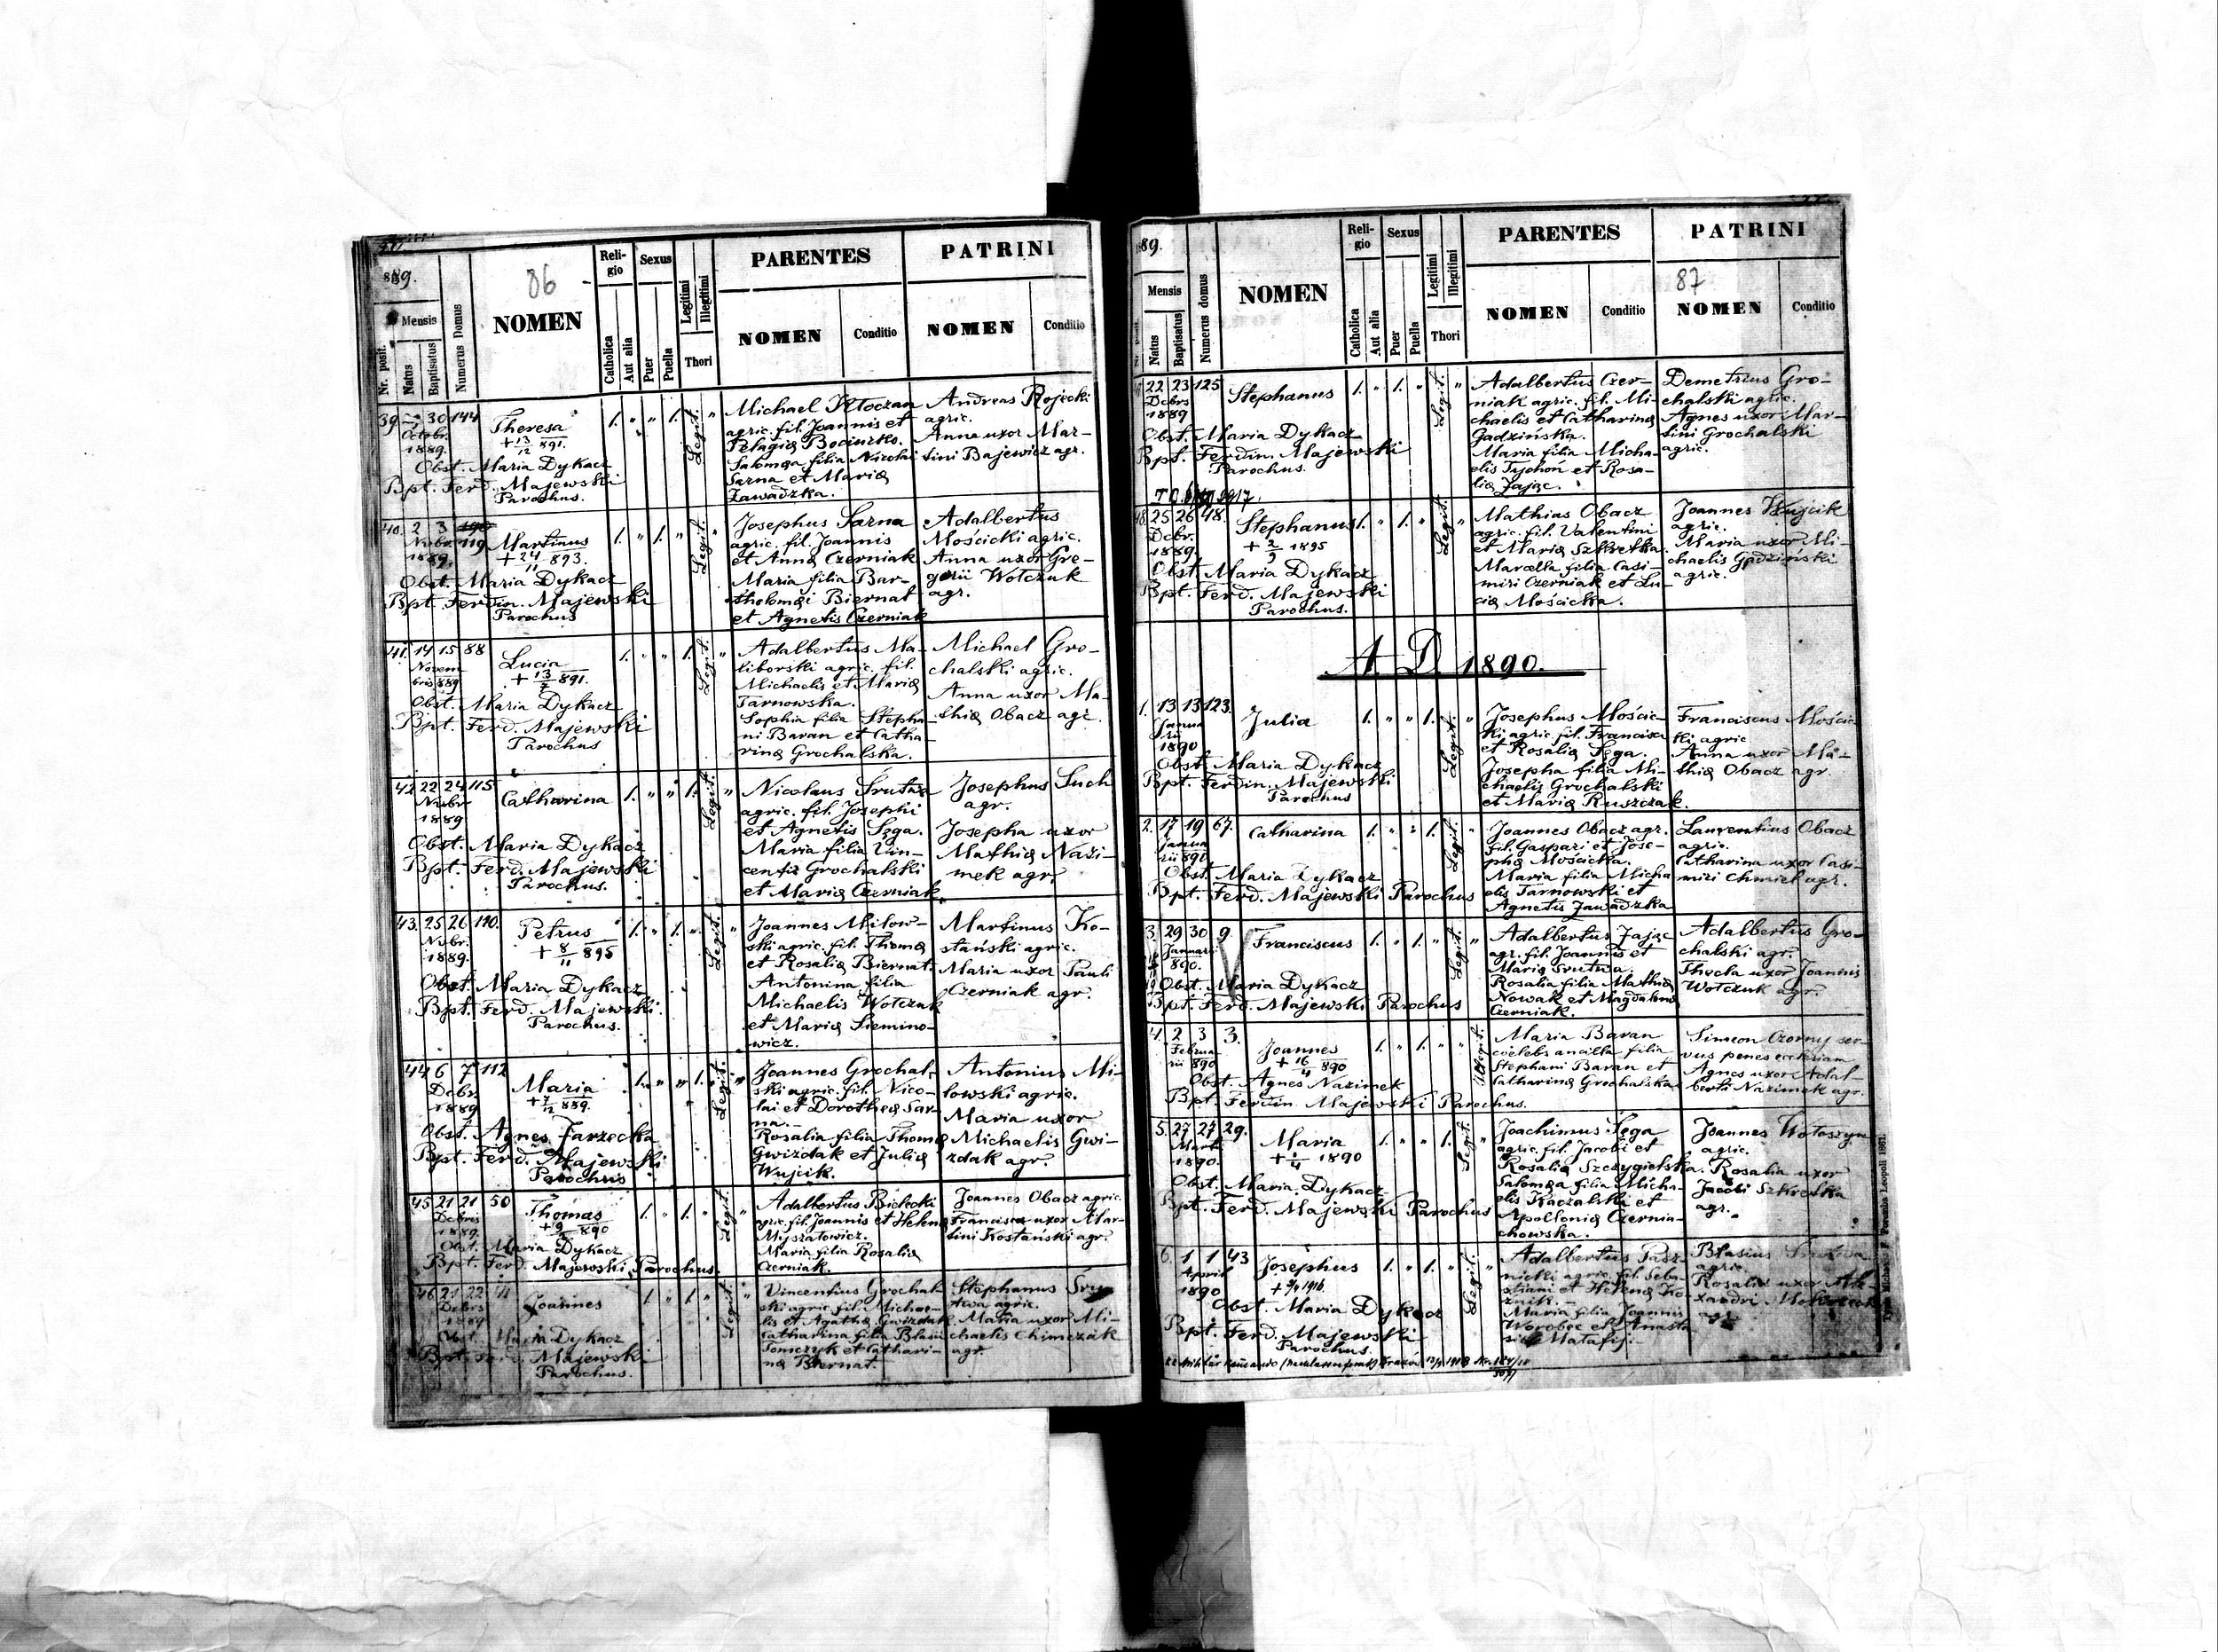 889.
86
Nr. posit.
Mensis
Natus
Baptisatus
Numerus Domus
NOMEN
Reli-
gio
Catholica
Aut alia
Sexus
Puer
Puella
Legitimi
Illegitimi
Thori
PARENTES
NOMEN
Conditio
PATRINI
NOMEN
Conditio
39. 30 144
Octobr.
1889.
Theresa
+ 13/12 891.
Obst. Maria Dykacz
Bpt. Ferd. Majewski
Parochus.
Legit.
Michael Kloczan
agric. fil. Joannis et
Pelagiæ Bociurko.
Salomea filia Nicolai
Sarna et Mariæ
Zawadzka.
Andreas Rojecki
agric.
Anna uxor Mar-
tini Bajewicz agr.
40. 2 3 119
Nvbr.
1889.
Martinus
+ 24/11 893.
Obst. Maria Dykacz
Bpt. Ferdin. Majewski
Parochus
Legit.
Josephus Sarna
agric. fil. Joannis
et Annæ Czerniak
Maria filia Bar-
tholomæi Biernat
et Agnetis Czerniak
Adalbertus
Mościcki agric.
Anna uxor Gre-
gorii Wołczuk
agr.
41. 14 15 88
Novem
bris 889
Lucia
+ 13/7 891.
Obst. Maria Dykacz
Bpt. Ferd. Majewski
Parochus
Legit.
Adalbertus Ma-
liborski agric. fil.
Michaelis et Mariæ
Tarnowska.
Sophia filia Stepha-
ni Baran et Catha-
rinæ Grochalska.
Michael Gro-
chalski agric.
Anna uxor Ma-
thiæ Obacz agr.
42. 22 24 115
Nvbr.
1889
Catharina
Obst. Maria Dykacz
Bpt. Ferd. Majewski
Parochus.
Legit.
Nicolaus Srutwa
agric. fil. Josephi
et Agnetis Sęga.
Maria filia Vin-
centii Grochalski
et Mariæ Czerniak
Josephus Such
agr.
Josepha uxor
Mathiæ Nazi-
mek agr.
43. 25 26 110.
Nvbr.
1889.
Petrus
+ 8/11 895
Obst. Maria Dykacz
Bpt. Ferd. Majewski.
Parochus.
Legit.
Joannes Miłow-
ski agric. fil. Thomæ
et Rosaliæ Biernat.
Antonina filia
Michaelis Wołczuk
et Mariæ Siemino-
wicz.
Martinus Ko-
stański agric.
Maria uxor Pauli
Czerniak agr.
44 6 7 112
Dcbr.
1889
Maria
+ 7/12 889.
Obst. Agnes Jarzecka
Bpt. Ferd. Majewski
Parochus
Legit.
Joannes Grochal-
ski agric. fil. Nico-
lai et Dorotheæ Sar-
na.
Rosalia filia Thomæ
Gwizdak et Juliæ
Wujcik.
Antonius Mi-
łowski agric.
Maria uxor
Michaelis Gwi-
zdak agr.
45 21 21 50
Dcbris
1889.
Thomas
+ 9/2 890
Obst. Maria Dykacz
Bpt. Ferd. Majewski Parochus.
Legit.
Adalbertus Bielecki
agric. fil. Joannis et Helenæ
Mijszatowicz.
Maria filia Rosaliæ
Czerniak.
Joannes Obacz agric.
Francisca uxor Mar-
tini Kostański agr.
46 21 22
Dcbrs
1889
Joannes
Obst. Maria Dykacz
Bpt. Ferd. Majewski
Parochus.
Legit.
Vincentius Grochal-
ski agric. fil. Michae-
lis et Agathæ Gwizdak.
Catharina filia Blasii
Tomczyk et Cathari-
næ Biernat.
Stephanus Sru-
twa agric.
Maria uxor Mi-
chaelis Chimczak
agr.
89.
87
Mensis
Natus
Baptisatus
Numerus domus
NOMEN
Reli-
gio
Catholica
Aut alia
Sexus
Puer
Puella
Legitimi
Illegitimi
Thori
PARENTES
NOMEN
Conditio
PATRINI
NOMEN
Conditio
22 23 125
Dcbrs
1889
Stephanus
Obst. Maria Dykacz
Bpt. Ferdin. Majewski
Parochus.
Legit.
Adalbertus Czer-
niak agric. fil. Mi-
chaelis et Catharinæ
Gadzińska.
Maria filia Micha-
elis Tychon et Rosa-
liæ Zając.
Demetrius Gro-
chalski agric.
Agnes uxor Mar-
tini Grochalski
agric.
48. 25 26 48.
Dcbr.
1889.
Stephanus
+ 2/9 1895
Obst. Maria Dykacz
Bpt. Ferd. Majewski
Parochus.
Legit.
Mathias Obacz
agric. fil. Valentini
et Mariæ Szkretka.
Marcella filia Casi-
miri Czerniak et Lu-
ciæ Mościcka.
Joannes Wujcik
agric.
Maria uxor Mi-
chaelis Gadziński
agric.
A. D. 1890.
1. 13 13 123.
Janua
rii
1890
Julia
Obst. Maria Dykacz
Bpt. Ferdin. Majewski
Parochus
Legit.
Josephus Mościc-
ki agric. fil. Francisci
et Rosaliæ Sęga.
Josepha filia Mi-
chaelis Grochalski
et Mariæ Ruszczak.
Franciscus Mościc
ki agric.
Anna uxor Ma-
thiæ Obacz agr.
2. 17 19 67.
Janua
rii 890
Catharina
Obst. Maria Dykacz
Bpt. Ferd. Majewski Parochus
Legit.
Joannes Obacz agr.
fil. Gaspari et Jose-
phæ Mościcka.
Maria filia Micha
elis Tarnowski et
Agnetis Zawadzka
Laurentius Obacz
agric.
Catharina uxor Casi-
miri Chmiel agr.
3. 29 30 9.
Januarii
890.
Franciscus
Obst. Maria Dykacz
Bpt. Ferd. Majewski Parochus
Legit.
Adalbertus Zając
agr. fil. Joannis et
Mariæ Srutwa.
Rosalia filia Mathiæ
Nowak et Magdalenæ
Czerniak.
Adalbertus Gro-
chalski agr.
Thecla uxor Joannis
Wołczuk agr.
4. 2 3 3.
Februa
rii 890
Joannes
+ 16/4 890
Obst. Agnes Nazimek
Bpt. Ferdin. Majewski Parochus.
Illegit.
Maria Baran
coelebs ancilla filia
Stephani Baran et
Catharinæ Grochalska
Simeon Czorny ser-
vus penes ecclesiam
Agnes uxor Adal-
berti Nazimek agr.
5. 27 27 29.
Marti
1890.
Maria
+ 1/4 1890
Obst. Maria Dykacz
Bpt. Ferd. Majewski Parochus
Legit.
Joachimus Sęga
agric. fil. Jacobi et
Rosaliæ Szczygielska.
Salomea filia Micha-
elis Kaczalski et
Apolloniæ Czernia-
chowska.
Joannes Wołoszyn
agric.
Rosalia uxor
Jacobi Szkretka
agr.
6. 1 1 43
Aprili
1890
Josephus
Obst. Maria Dykacz
Bpt. Ferd. Majewski
Parochus.
Legit.
Adalbertus Pasz-
nicki agric. fil. Seba-
stiani et Helenæ Ko-
znik.
Maria filia Joannis
Worobec et Anasta
siæ Matafij.
Blasius Srutwa
agric.
Rosalia uxor Ale-
xandri
agr.